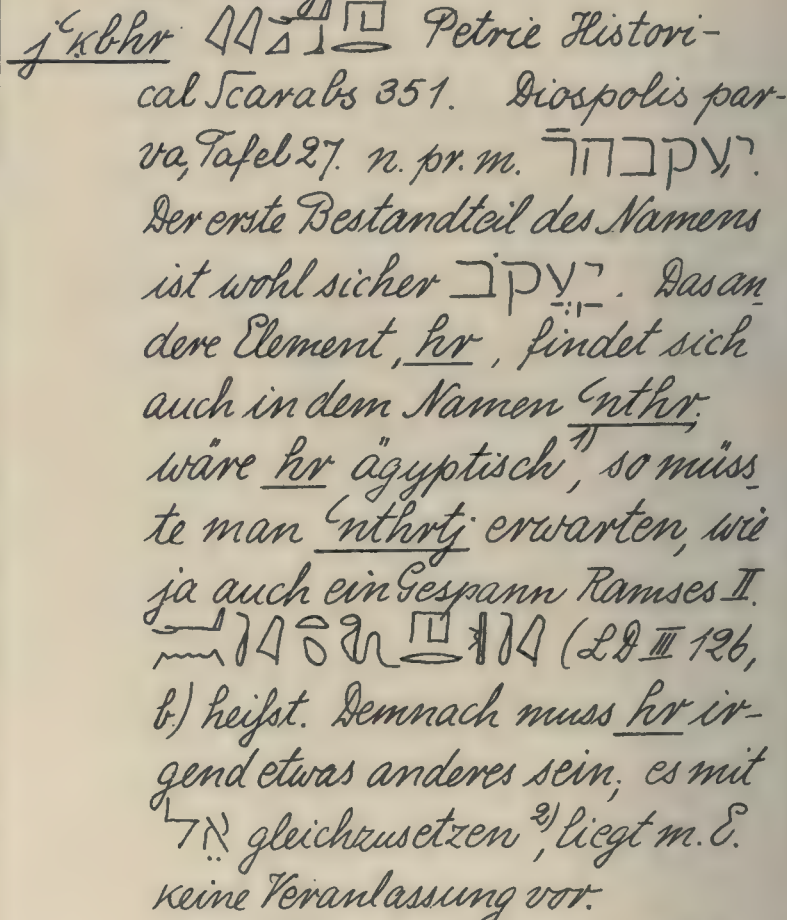 jʿḳbhr Petrie Histori-
cal Scarabs 351. Diospolis par-
va, Tafel 27. n. pr. m. יעקבהר.
Der erste Bestandteil des Namens
ist wohl sicher יַעֲקֹב. Das an
dere Element, hr, findet sich
auch in dem Namen ʿnthr.
wäre hr ägyptisch¹⁾, so müss
te man ʿnthrtj erwarten, wie
ja auch ein Gespann Ramses II.
(LD III 126,
b.) heifst. Demnach muss hr ir-
gend etwas anderes sein; es mit
אֵל gleichzusetzen²⁾, liegt m. E.
keine Veranlassung vor.